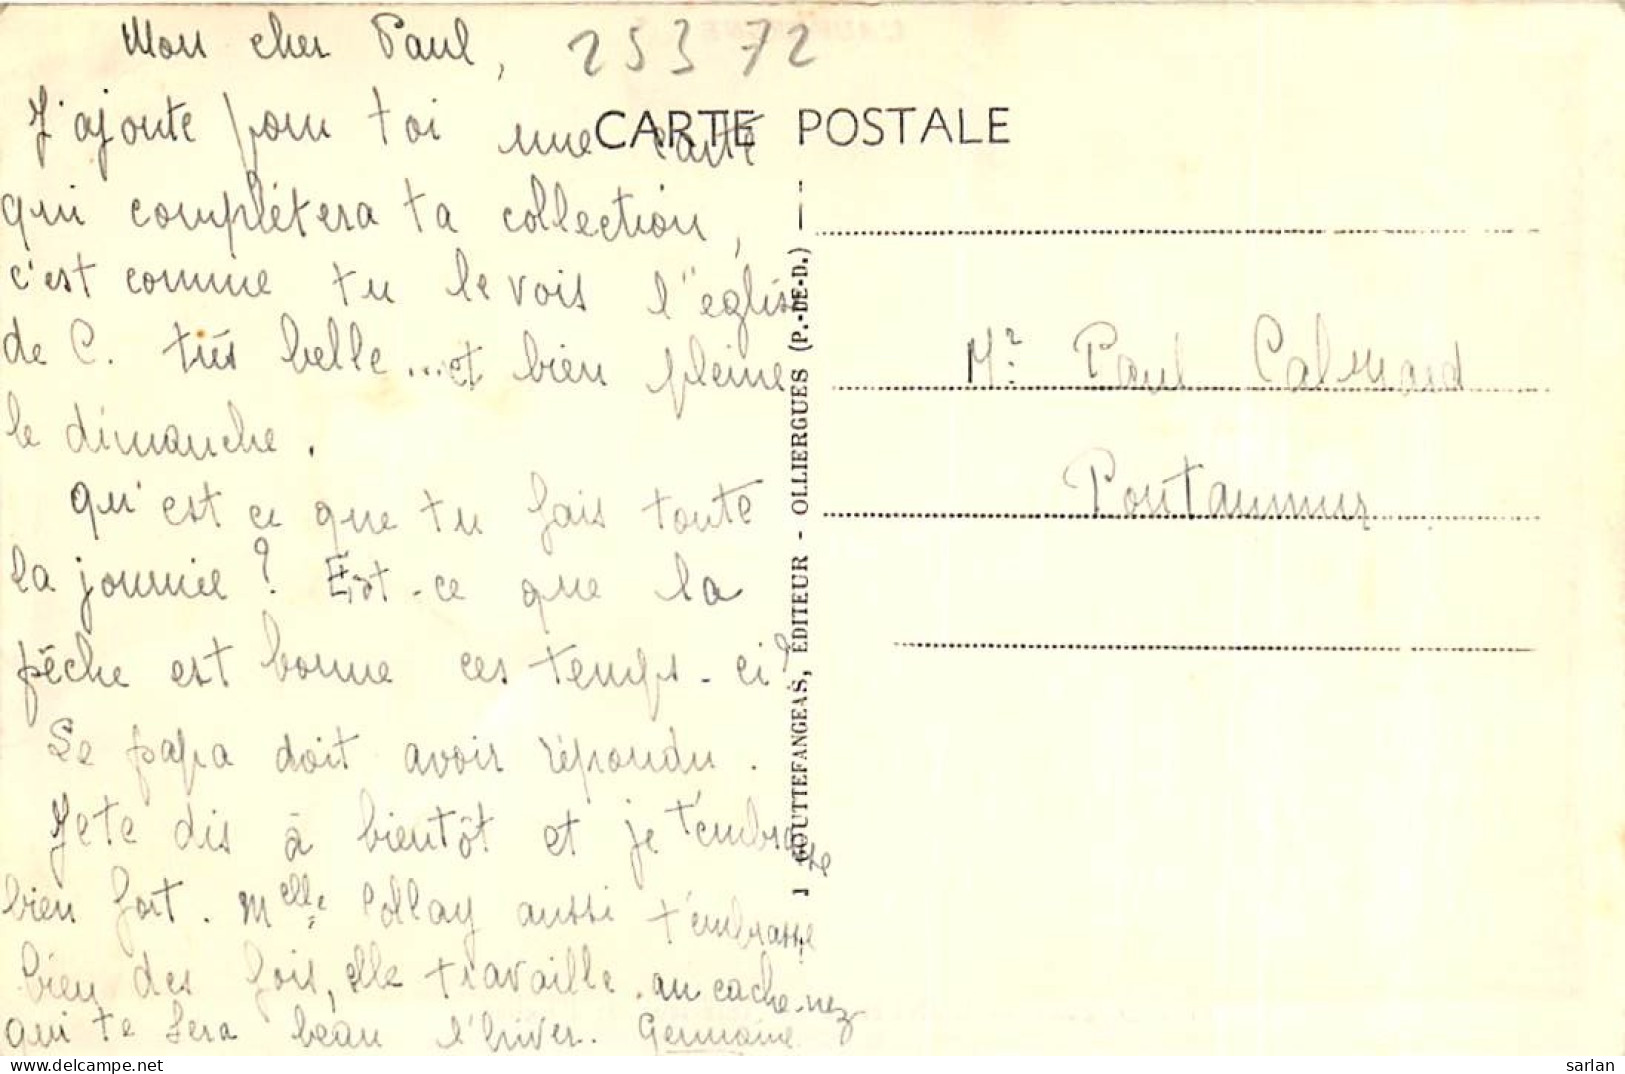 Mon cher Paul,
25372
J'ajoute pour toi une carte
CARTE POSTALE
qui complétera ta collection,
c'est comme tu le vois l'église
de C. très belle...et bien pleine
le dimanche.
qu'est ce que tu fais toute
la journée ? Est-ce que la
pêche est bonne ces temps-ci ?
Le papa doit avoir répondu.
Je te dis à bientôt et je t'embrasse
bien fort. Melle Collay aussi t'embrasse
bien des fois, elle travaille au cache-nez
qui te fera beau l'hiver. Germaine
J GOUTTEFANGEAS, EDITEUR - OLLIERGUES (P.-DE-D.)
Mr Paul Calmard
Pontaumur
sarlan